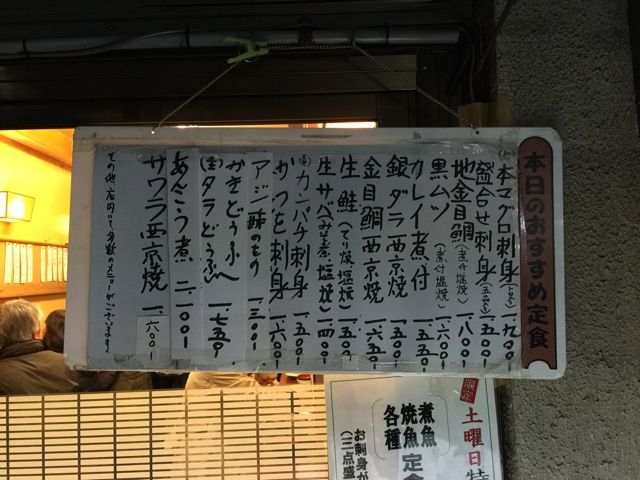 本日のおすすめ定食
本マグロ刺身(トロ入り) 一.九〇〇-
盛合せ刺身(五点盛) 一.五〇〇-
地金目鯛(煮付 塩焼) 一.八〇〇-
黒ムツ(煮付 塩焼) 一.六〇〇-
カレイ煮付 一.五五〇-
銀ダラ西京焼 一.八〇〇-
金目鯛西京焼 一.六五〇-
生鮭(てり焼 塩焼) 一.五〇〇-
生サバ(みそ煮 塩焼) 一.四〇〇-
カンパチ刺身 一.五〇〇-
かつを刺身 一.六〇〇-
アジ酢のもの 一.三〇〇-
かきどうふ
生タラどうふ 一.七五〇-
あんこう煮 二.一〇〇-
サワラ西京焼 一.六〇〇-
その他、店内にて多数のメニューがございます
限定
土曜日特
煮魚
焼魚 定食
各種
お刺身が
(三点盛